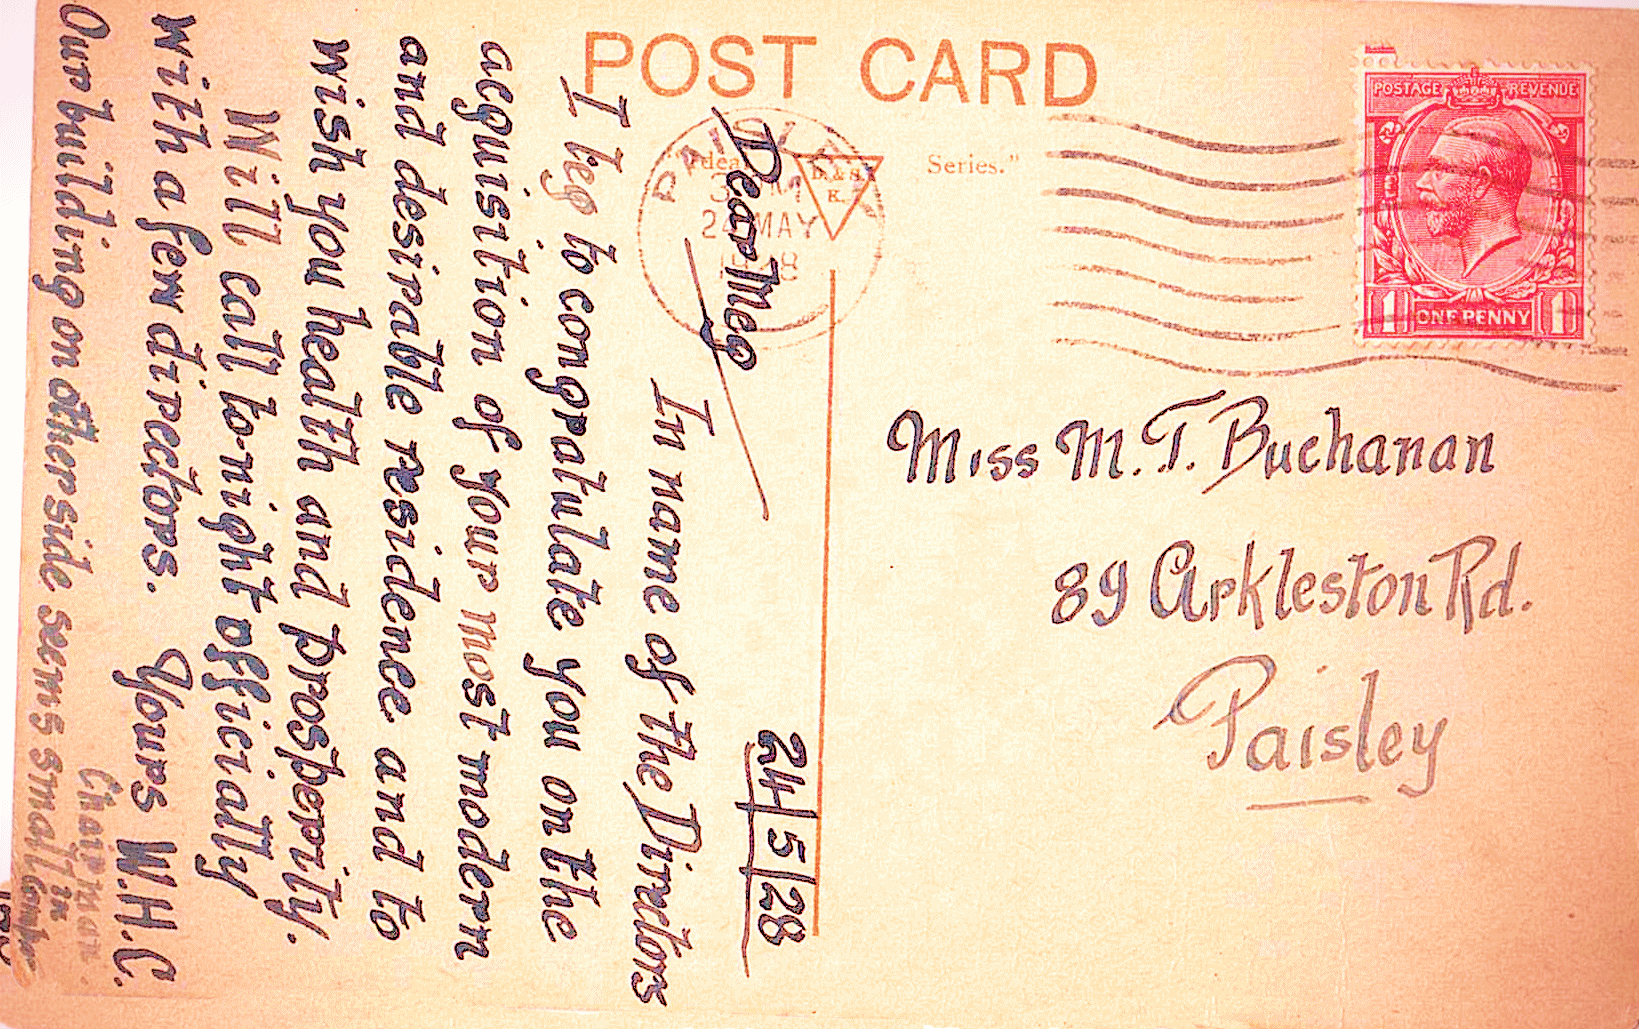 POST CARD
"Ideal Series."
D. & S.
K.
PAISLEY
24 MAY
POSTAGE REVENUE
1 ONE PENNY 1
Miss M. T. Buchanan
89 Arkleston Rd.
Paisley
24/5/28
Dear Meg
In name of the Directors
I beg to congratulate you on the
acquisition of your most modern
and desirable residence and to
wish you health and prosperity.
Will call to-night officially
with a few directors.
Yours W.H.C.
Chairman.
Our building on other side seems small in